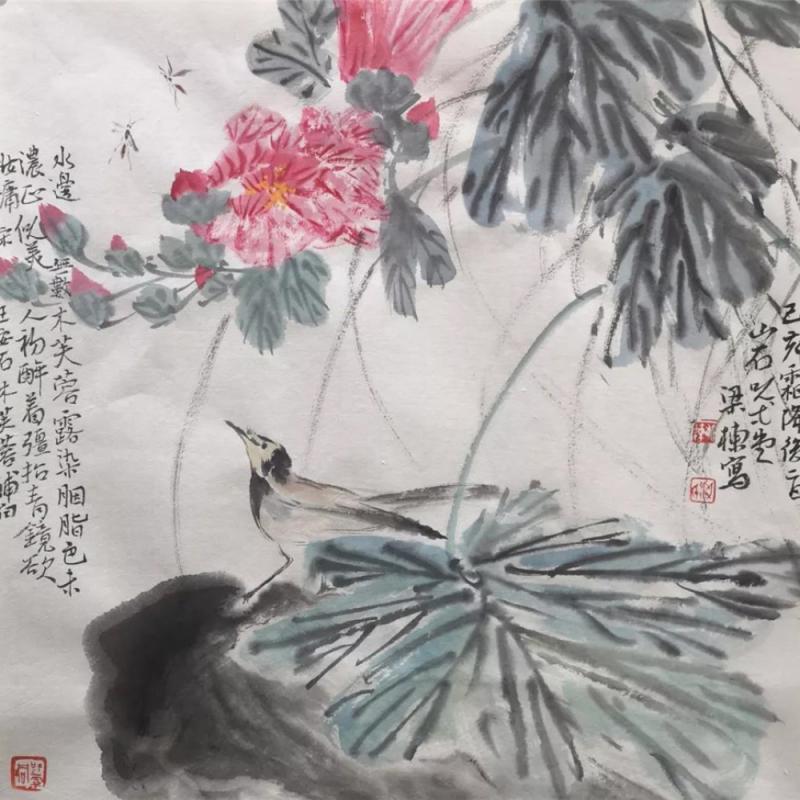 己亥霜降後
山石
梁棟寫
水邊無數木芙蓉露染胭脂色未
濃正似美人初醉着彊抬青鏡欲
妝慵宋王安石木芙蓉